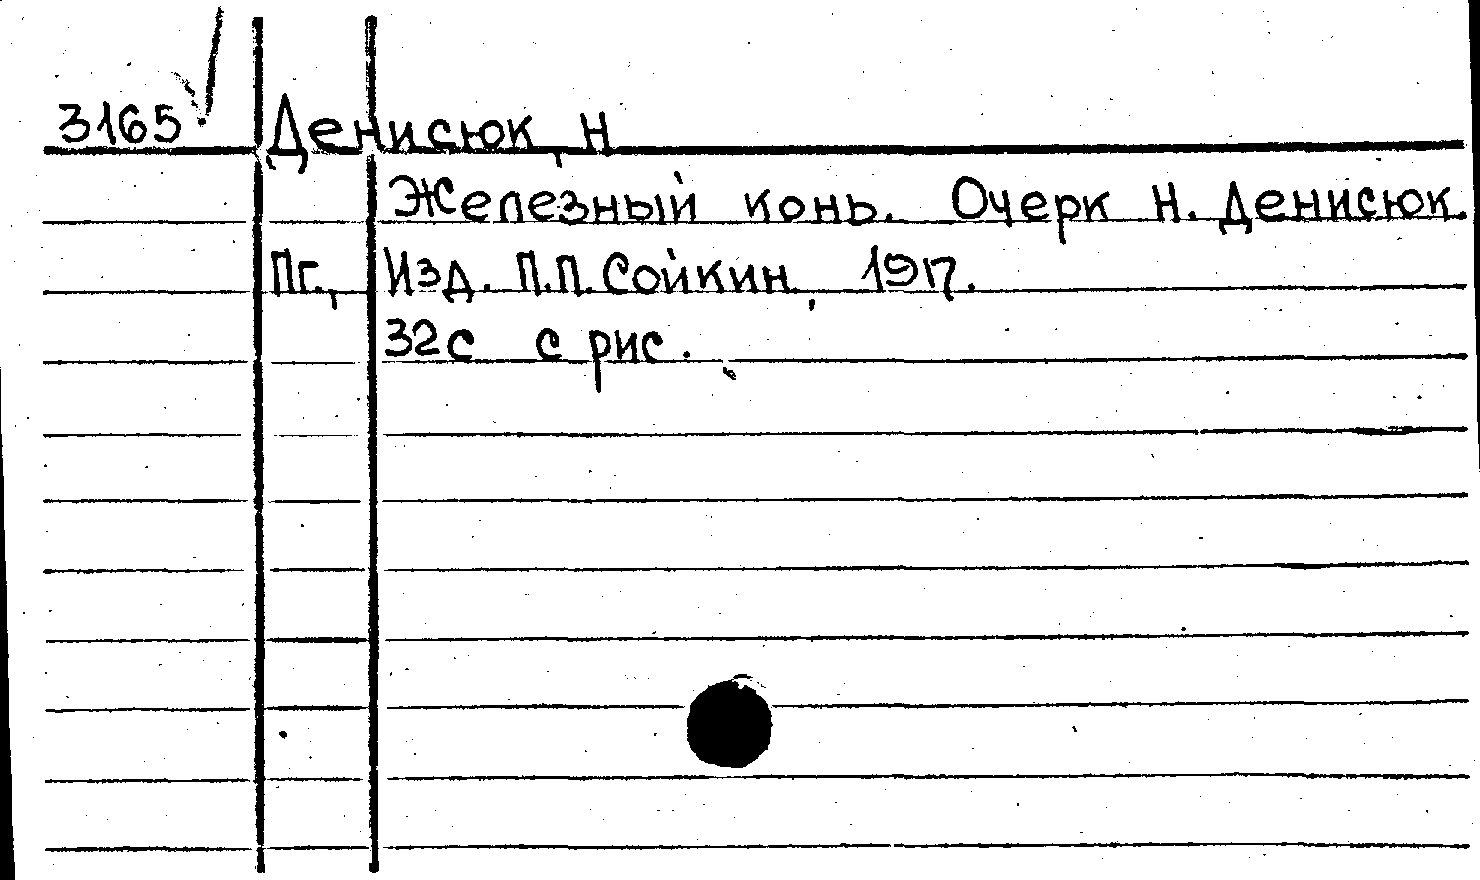 3165 Денисюк, Н
Железный конь. Очерк Н. Денисюк.
Пг., Изд. П.П. Сойкин, 1917.
32с с рис.